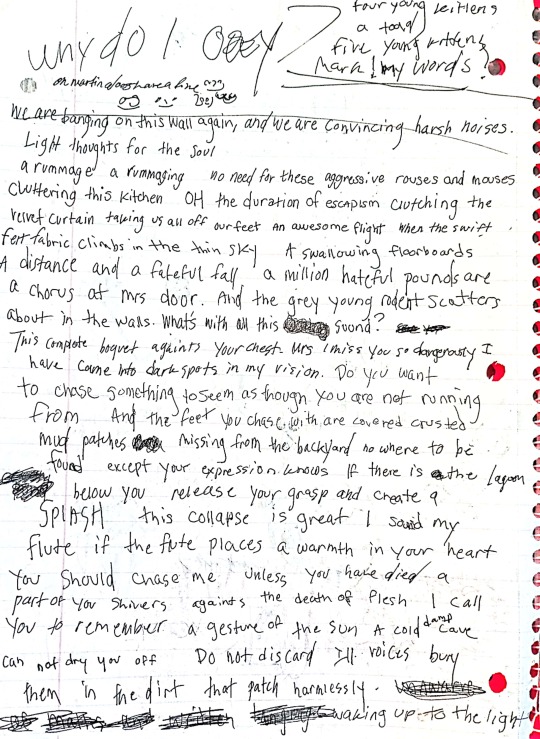 four young kittens
a toad
five young kittens
Mark my words!
why do I obey
We are banging on this wall again, and we are convincing harsh noises.
Light thoughts for the soul
a rummage a rummaging no need for these aggressive rouses and mouses
cluttering this kitchen OH the duration of escapism clutching the
velvet curtain taking us all off our feet An awesome flight when the swift
felt fabric climbs in the thin sky A swallowing floorboards
A distance and a fateful fall a million hateful pounds are
a chorus at mrs door. And the grey young rodent scatters
about in the walls. What's with all this suond?
This complete boquet againts your chest. Mrs I miss you so dangerously I
have come into dark spots in my vision. Do you want
to chase something to seem as though you are not running
from And the feet you chase with are covered crusted
mud patches missing from the backyard no where to be
found except your expression knows If there is the Lagoon
below you release your grasp and create a
SPLASH this collapse is great I said my
flute if the flute places a warmth in your heart
You should chase me unless you have died a
part of you shivers againts the death of flesh I call
you to remember a gesture of the sun A cold damp cave
can not dry you off Do not discard Ill voices bury
them in the dirt that patch harmlessly.
written waking up to the light